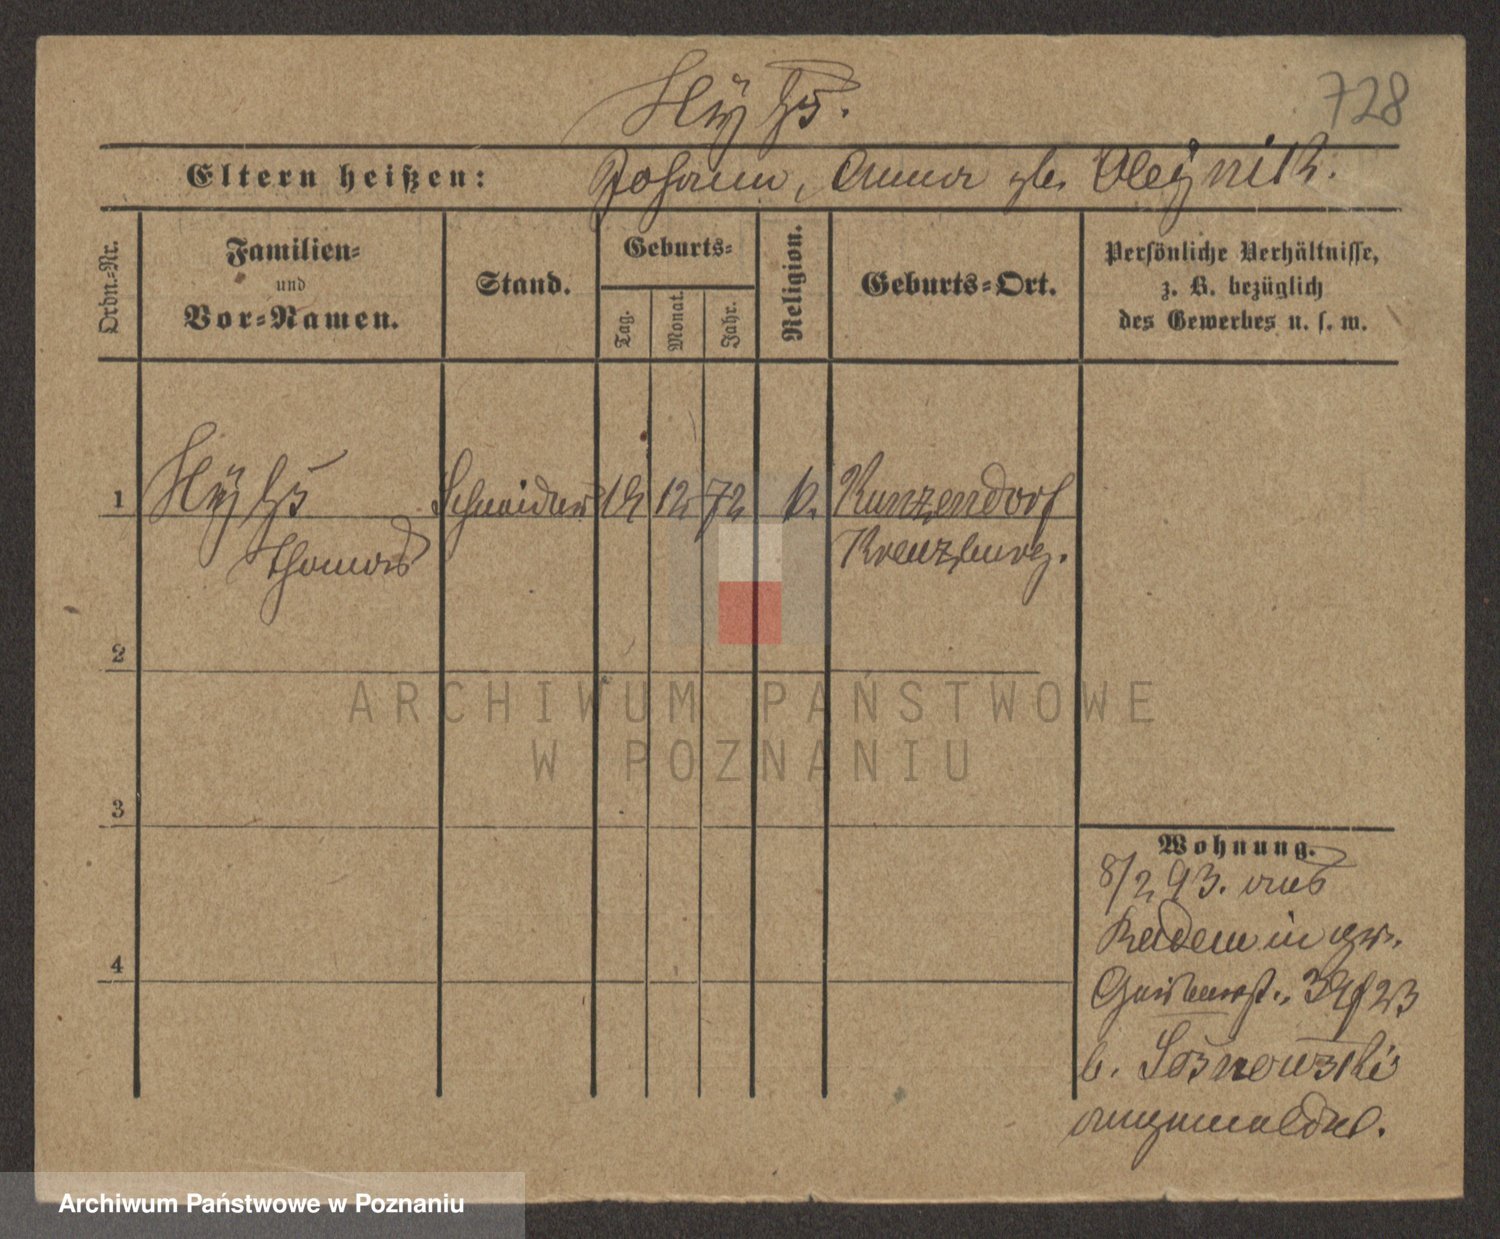 728
Eltern heißen: Johann, Anna gb. Oleynik.
Ordn.-Nr.
Familien-
und
Vor-Namen.
Stand.
Geburts-
Tag.
Monat.
Jahr.
Religion.
Geburts-Ort.
Persönliche Verhältnisse,
z. B. bezüglich
des Gewerbes u. s. w.
1 Schneider 12 72 k. Kunzendorf
Thomas Kreuzburg.
2
3
4
Wohnung.
8/2 93. aus
in
b. Sosnowski
angemeldet.
ARCHIWUM PAŃSTWOWE
W POZNANIU
Archiwum Państwowe w Poznaniu